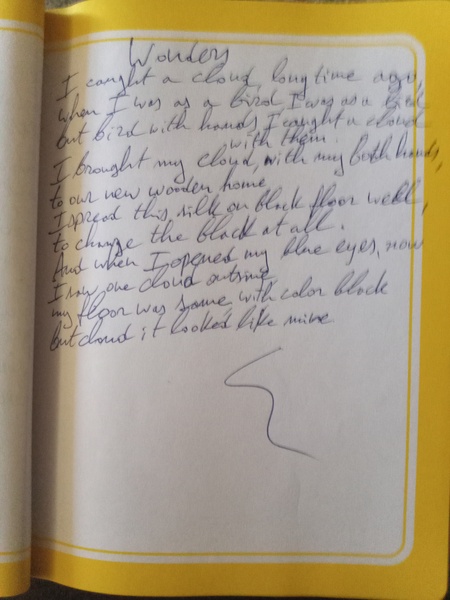 Wonders
I caught a cloud, long time ago,
when I was as a bird I was as a bird
but bird with hands I caught a cloud
with them.
I brought my cloud, with my both hands,
to our new wooden home
I spread this silk on black floor well,
to change the black at all.
And when I opened my blue eyes, now
I saw one cloud outside
my floor was same with color black
but cloud it looked like mine